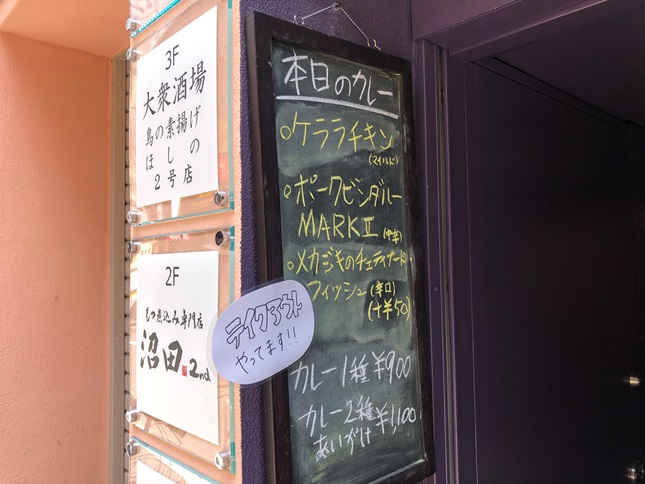 3F
大衆酒場
鳥の素揚げ
ほしの
2号店
2F
もつ煮込み専門店
沼田 2nd
本日のカレー
○ケララチキン
(マイルド)
○ポークビンダルー
MARKⅡ (中辛)
○メカジキのチェティナード
フィッシュ(辛口)
(+¥50)
テイクアウト
やってます!!
カレー1種¥900
カレー2種¥1,100
あいがけ